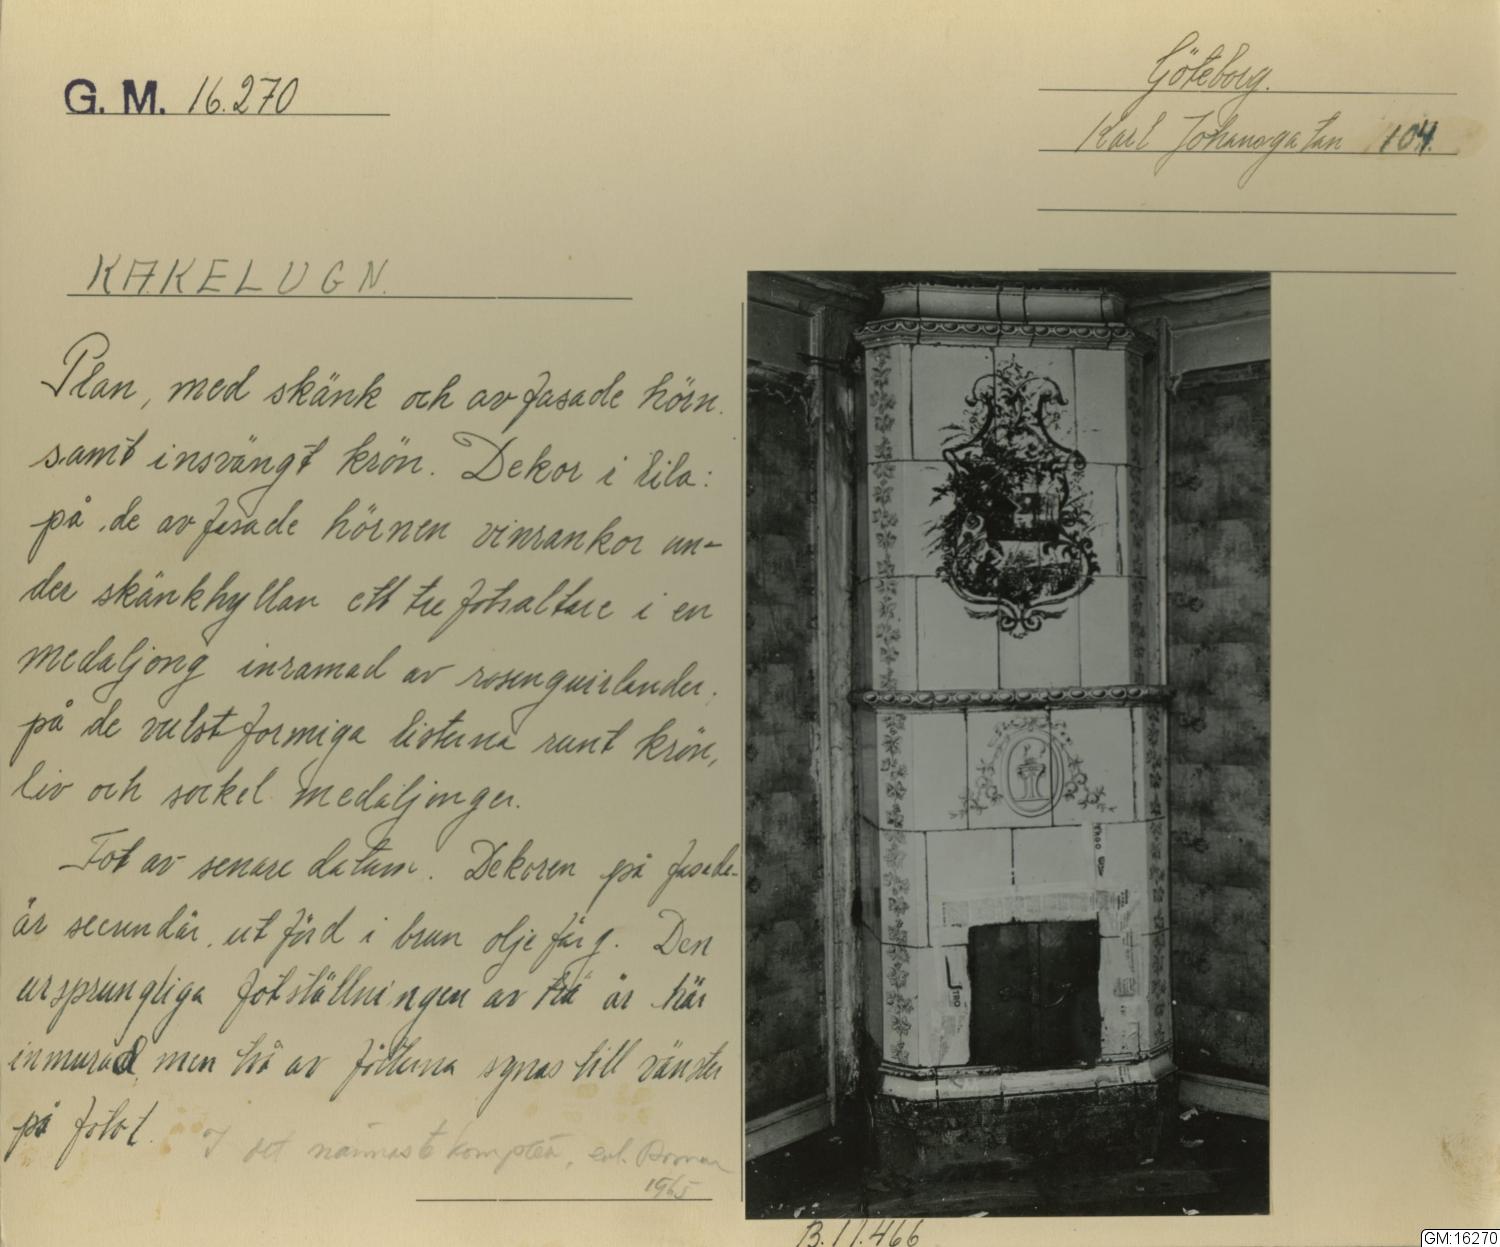 G. M. 16.270
Göteborg.
Karl Johansgatan 104.
KAKELUGN.
Plan, med skänk och avfasade hörn.
samt insvängt krön. Dekor i lila:
på de avfasade hörnen vinrankor un-
der skänkhyllan ett trefotsaltare i en
medaljong inramad av rosenguirlander.
på de vulstformiga listerna runt krön,
liv och sockel medaljonger.
Fot av senare datum. Dekoren på fasade-
är secundär, utförd i brun oljefärg. Den
ursprungliga fotställningen av trä är här
inmurad men två av fötterna synas till vänster
på fotot.
I det närmaste komplett, enl.
1965
B. 11.466
GM:16270